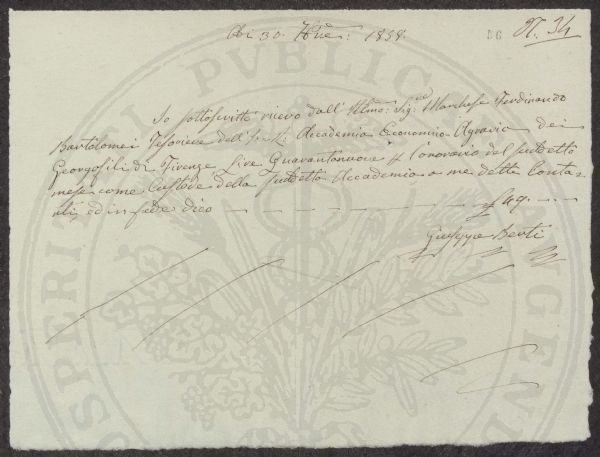 Di 30. 9bre: 1838.
86 N. 34
Io sottoscritto ricevo dall' Illmo: Sigre Marchese Ferdinando
Bartolomei Tesoriere dell' I. R. Accademia Economico Agraria dei
Georgofili di Firenze Lire Quarantanove p. l'onorario del suddetto
mese come Custode della suddetta Accademia a me dette Conta=
nti, ed in fede dico — — — — — — £ 49. — —
Giuseppe Berti
PROSPERITATI PUBLICAE AUGENDAE